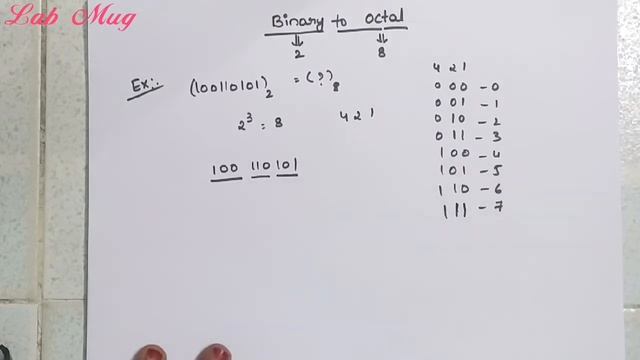 Lab Mug
Binary to Octal
⇓ ⇓
2 8
Ex:- (100110101)₂ = (?)₈
2³ = 8 4 2 1
100 110 101
4 2 1
0 0 0 - 0
0 0 1 - 1
0 1 0 - 2
0 1 1 - 3
1 0 0 - 4
1 0 1 - 5
1 1 0 - 6
1 1 1 - 7